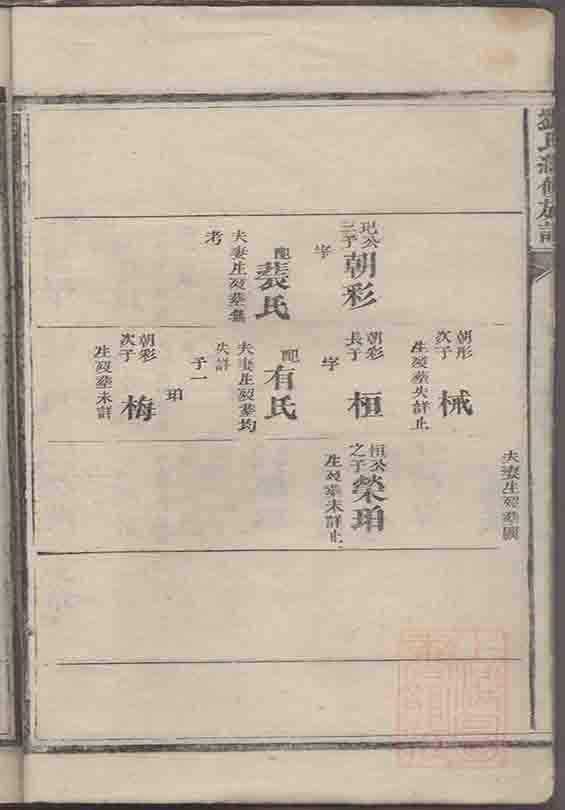 朝彩
三子
字
配
裵氏
夫妻生歿葬無
考
朝彤
次子
棫
生歿葬失詳止
朝彩
長子
桓
字
配
有氏
夫妻生歿葬均
失詳
子一
珀
朝彩
次子
梅
生歿葬未詳
夫妻生歿葬
桓公
之子
榮珀
生歿葬未詳止